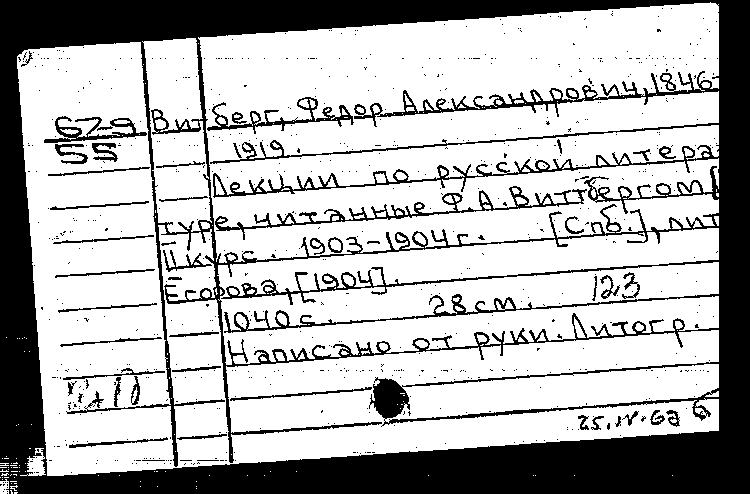 67-9 Витберг, Федор Александрович, 1846-
55 1919.
Лекции по русской литера
туре, читанные Ф.А. Виттбергом [
II курс. 1903-1904 г. [Спб.], лит
Егорова, [1904].
1040 с. 28 см. 123
Написано от руки. Литогр.
25.IV.67